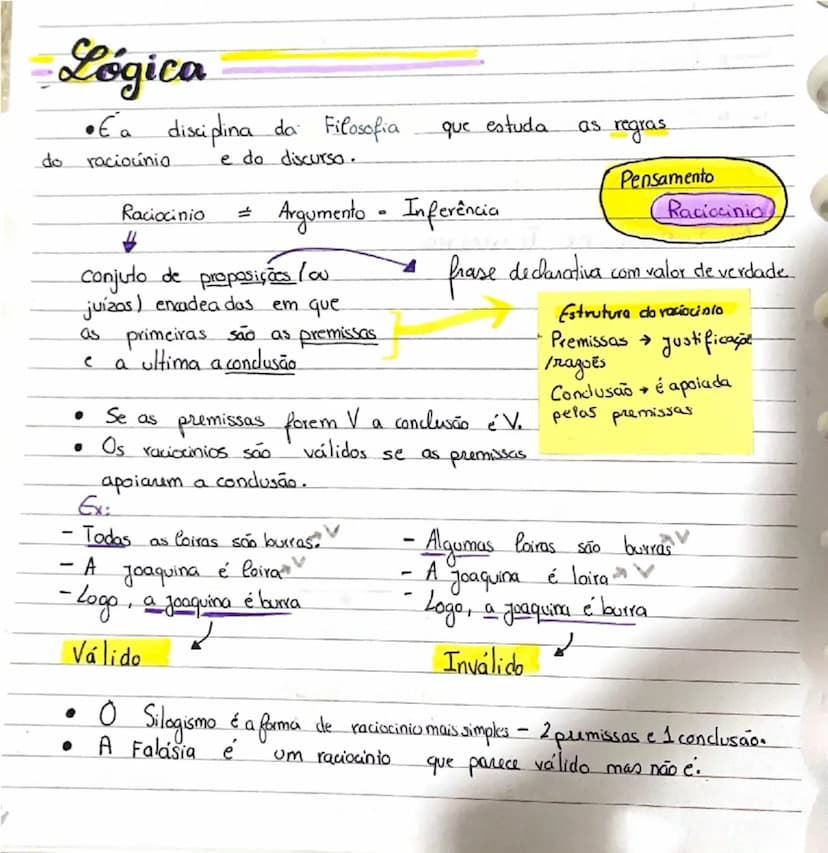 Lógica
• É a disciplina da Filosofia que estuda as regras
do raciocinio e do discurso.
Pensamento
Raciocinio
Raciocinio ≠ Argumento = Inferência
conjuto de proposições (ou
frase declarativa com valor de verdade
juízos) encadeadas em que
as primeiras são as premissas
e a ultima a conclusão
Estrutura do raciocinio
Premissas → justificação
/razões
Conclusão → é apoiada
pelas premissas
• Se as premissas forem V a conclusão é V.
• Os raciocinios são válidos se as premissas
apoiarem a conclusão.
Ex:
- Todas as loiras são burras. → V
- A Joaquina é loira → V
- Logo, a Joaquina é burra
Válido
- Algumas loiras são burras → V
- A Joaquina é loira → V
- Logo, a Joaquina é burra
Inválido
• O Silogismo é a forma de raciocinio mais simples - 2 premissas e 1 conclusão.
• A Falásia é um raciocinio que parece válido mas não é.